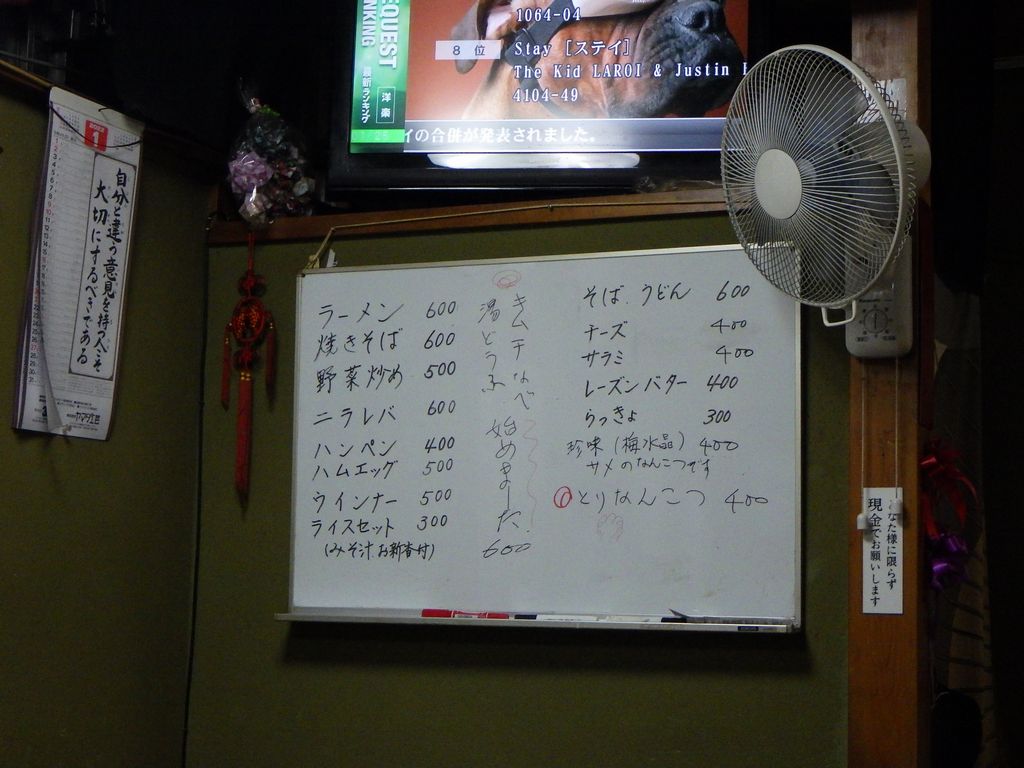 1064-04
8 位 Stay [ステイ]
The Kid LAROI & Justin
4104-49
イの合併が発表されました。
EQUEST
NKING
最新ランキング
洋楽
1
自分と違う意見を持つ人こそ
大切にするべきである
ラーメン 600
焼きそば 600
野菜炒め 500
ニラレバ 600
ハンペン 400
ハムエッグ 500
ウインナー 500
ライスセット 300
(みそ汁お新香付)
キムチなべ
湯どうふ
始めました。
600
そば、うどん 600
チーズ 400
サラミ 400
レーズンバター 400
らっきょ 300
珍味(梅水晶) 400
サメのなんこつです
とりなんこつ 400
あなた様に限らず
現金でお願いします